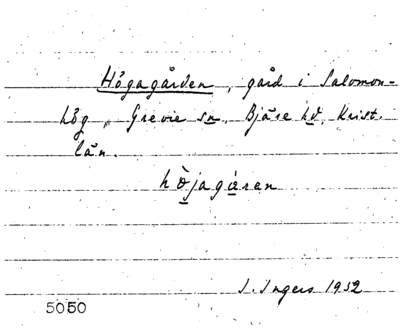 Högagården, gård i Salomon-
hög, Grevie sn. Bjäre hd. Krist.
län.
hö̀jagáren
I. Ingers 1952
5050